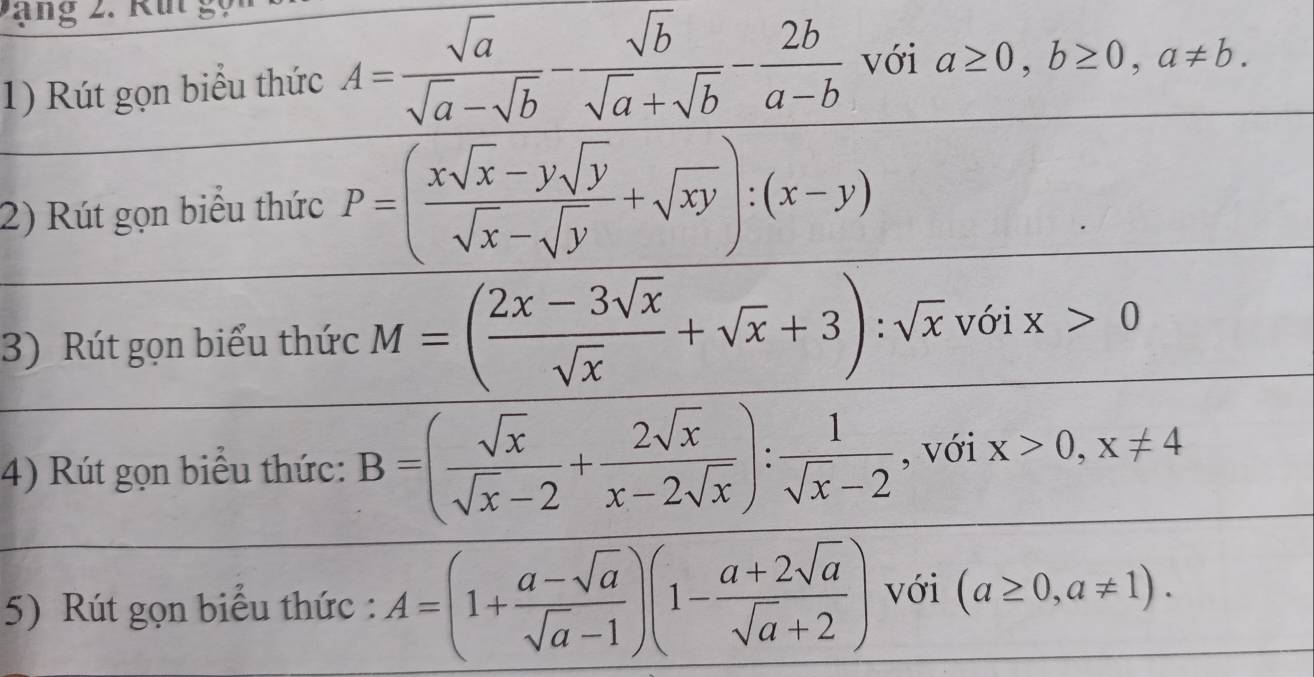 Dạng 2. Rút gọn
1) Rút gọn biểu thức $A = \frac{\sqrt{a}}{\sqrt{a}-\sqrt{b}} - \frac{\sqrt{b}}{\sqrt{a}+\sqrt{b}} - \frac{2b}{a-b}$ với $a \geq 0, b \geq 0, a \neq b$.
2) Rút gọn biểu thức $P = \left( \frac{x\sqrt{x}-y\sqrt{y}}{\sqrt{x}-\sqrt{y}} + \sqrt{xy} \right) : (x-y)$
3) Rút gọn biểu thức $M = \left( \frac{2x-3\sqrt{x}}{\sqrt{x}} + \sqrt{x} + 3 \right) : \sqrt{x}$ với $x > 0$
4) Rút gọn biểu thức: $B = \left( \frac{\sqrt{x}}{\sqrt{x}-2} + \frac{2\sqrt{x}}{x-2\sqrt{x}} \right) : \frac{1}{\sqrt{x}-2}$, với $x > 0, x \neq 4$
5) Rút gọn biểu thức : $A = \left( 1 + \frac{a-\sqrt{a}}{\sqrt{a}-1} \right) \left( 1 - \frac{a+2\sqrt{a}}{\sqrt{a}+2} \right)$ với $(a \geq 0, a \neq 1)$.